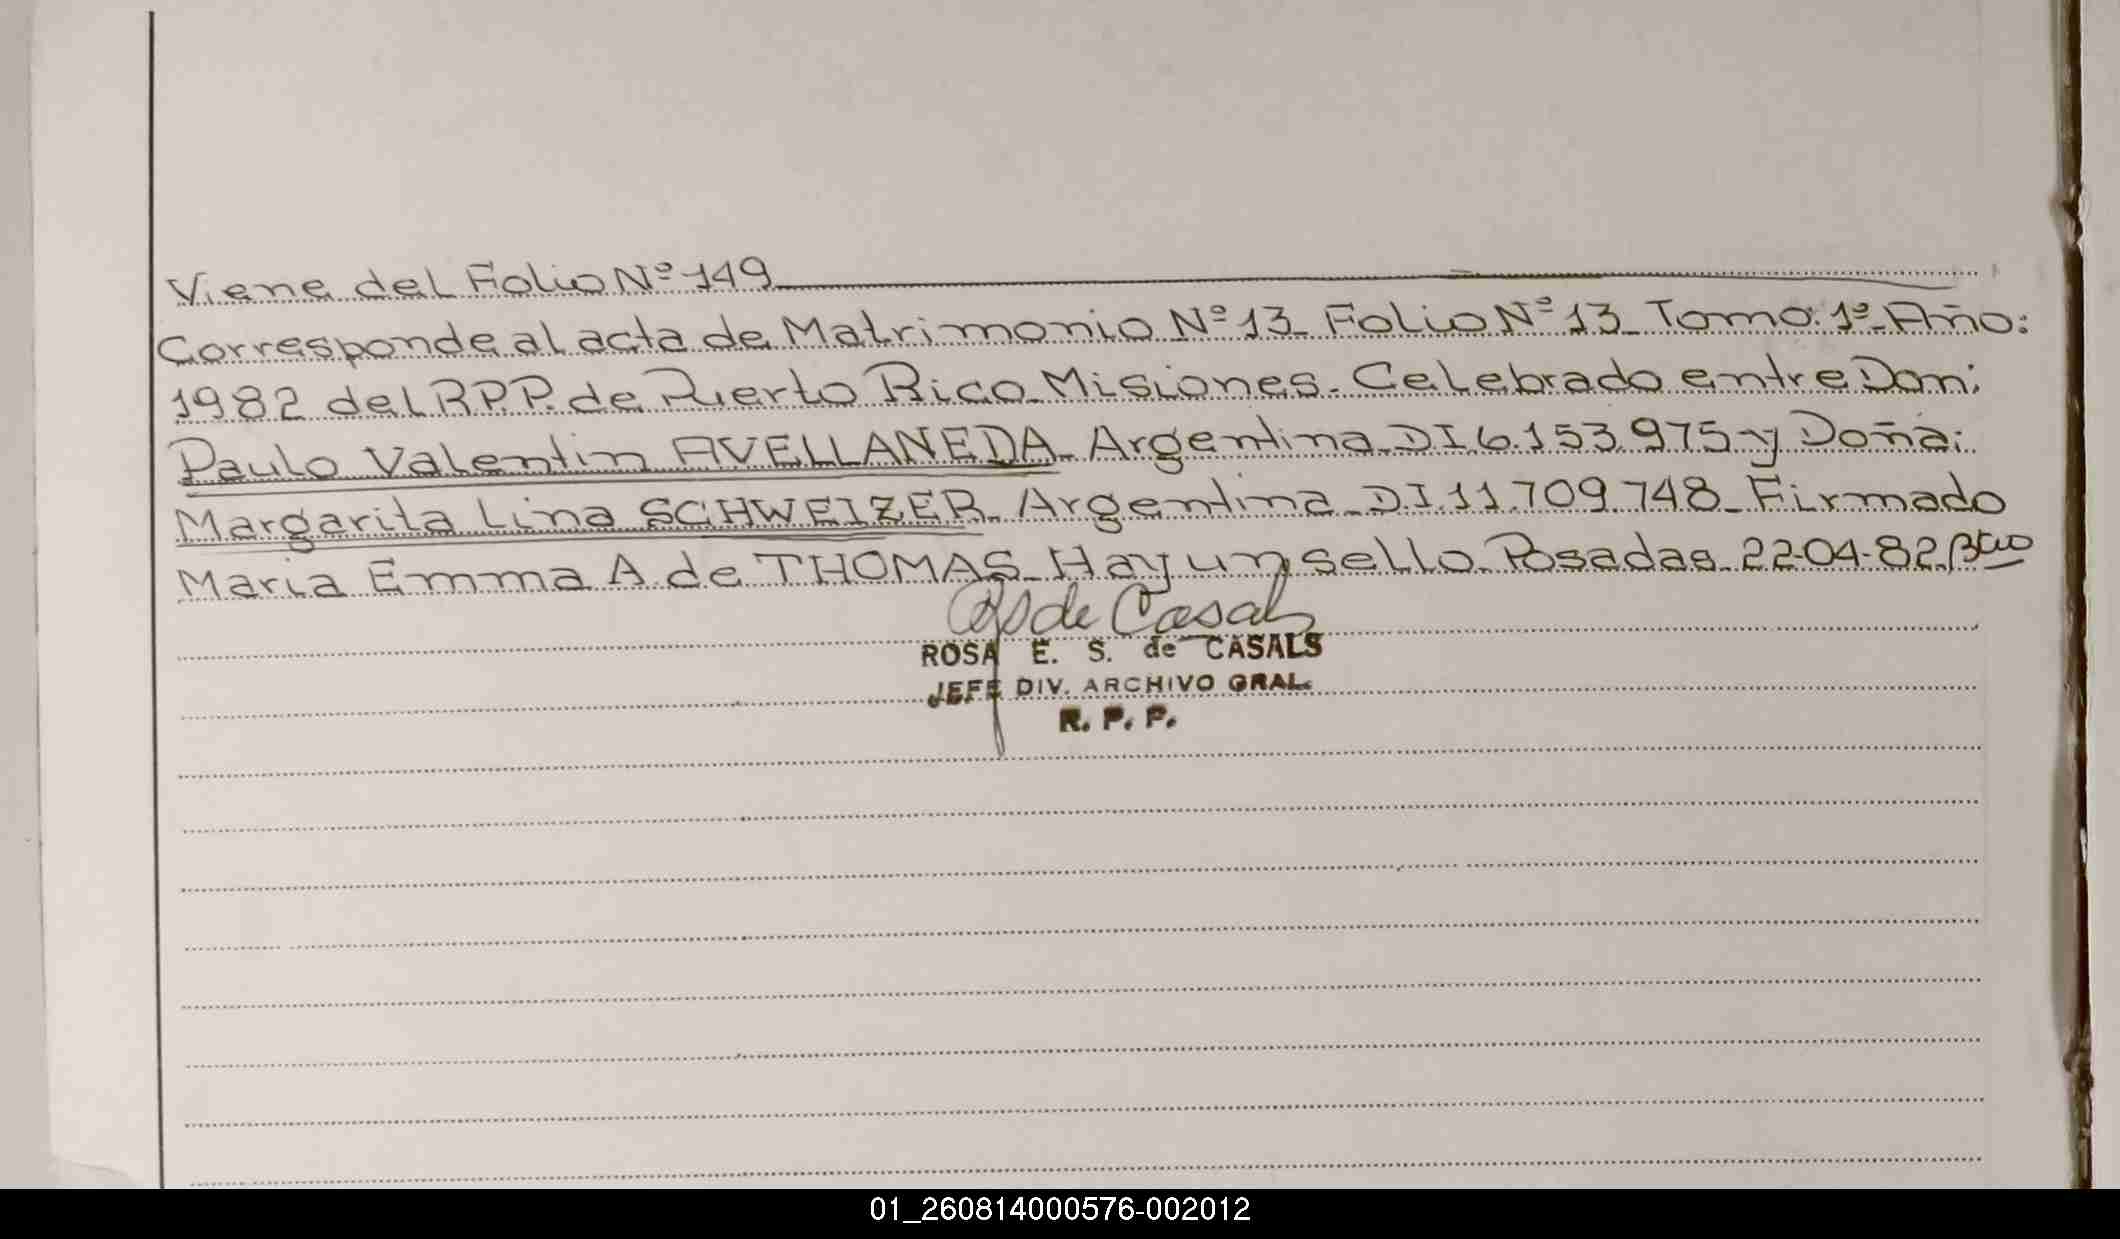 Viene del Folio Nº 149
Corresponde al acta de Matrimonio Nº 13 Folio Nº 13 Tomo: 1º Año:
1982 del R.P.P. de Puerto Rico Misiones. Celebrado entre Don:
Paulo Valentin AVELLANEDA Argentina D.I. 6.153.975 y Doña:
Margarita Lina SCHWEIZER Argentina D.I. 11.709.748 Firmado
Maria Emma A de THOMAS Hay un sello. Posadas 22-04-82
de Casals
ROSA E. S. de CASALS
JEFE DIV. ARCHIVO GRAL.
R. P. P.
01_260814000576-002012